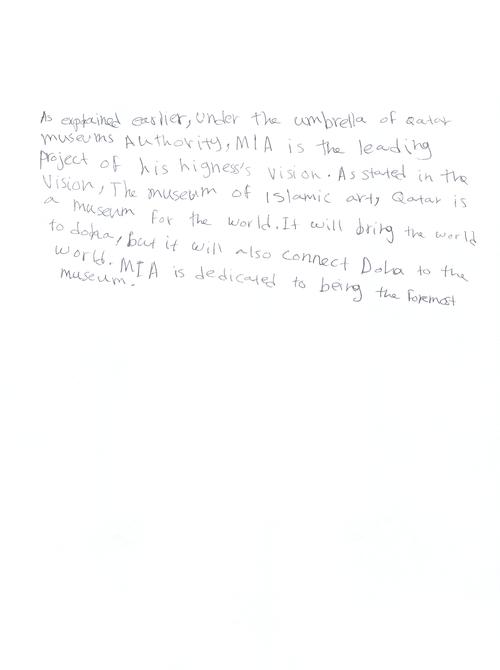 As explained earlier, under the umbrella of Qatar
museums Authority, MIA is the leading
Project of his higness's Vision. As stated in the
Vision, The museum of Islamic art, Qatar is
a museum for the world. It will bring the world
to doha, but it will also connect Doha to the
world. MIA is dedicated to being the foremost
museum.